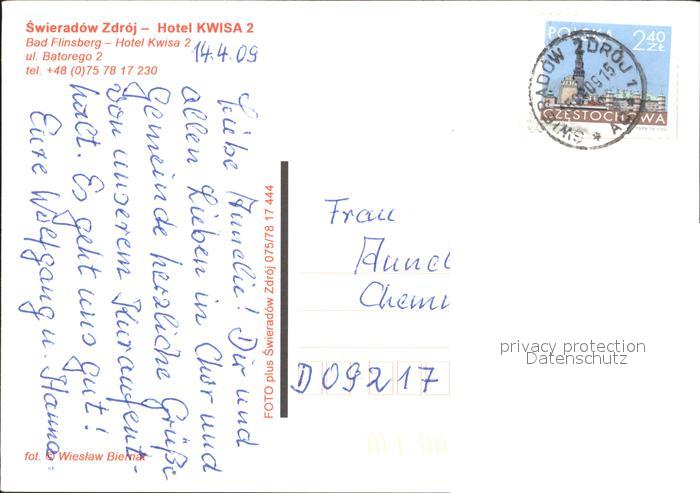 Świeradów Zdrój – Hotel KWISA 2
Bad Flinsberg – Hotel Kwisa 2
ul. Batorego 2
tel. +48 (0)75 78 17 230
14.4.09
Liebe Annelie! Dir und
allen Lieben in Chor und
Gemeinde herzliche Grüße
von unserem Kuraufent-
halt. Es geht uns gut!
Eure Wolfgang u. Hanna
fot. © Wiesław Biernat
FOTO plus Świeradów Zdrój 075/78 17 444
POLSKA 2,40 ZŁ
CZĘSTOCHOWA
Frau
Annel
Chemn
D 09217
privacy protection
Datenschutz